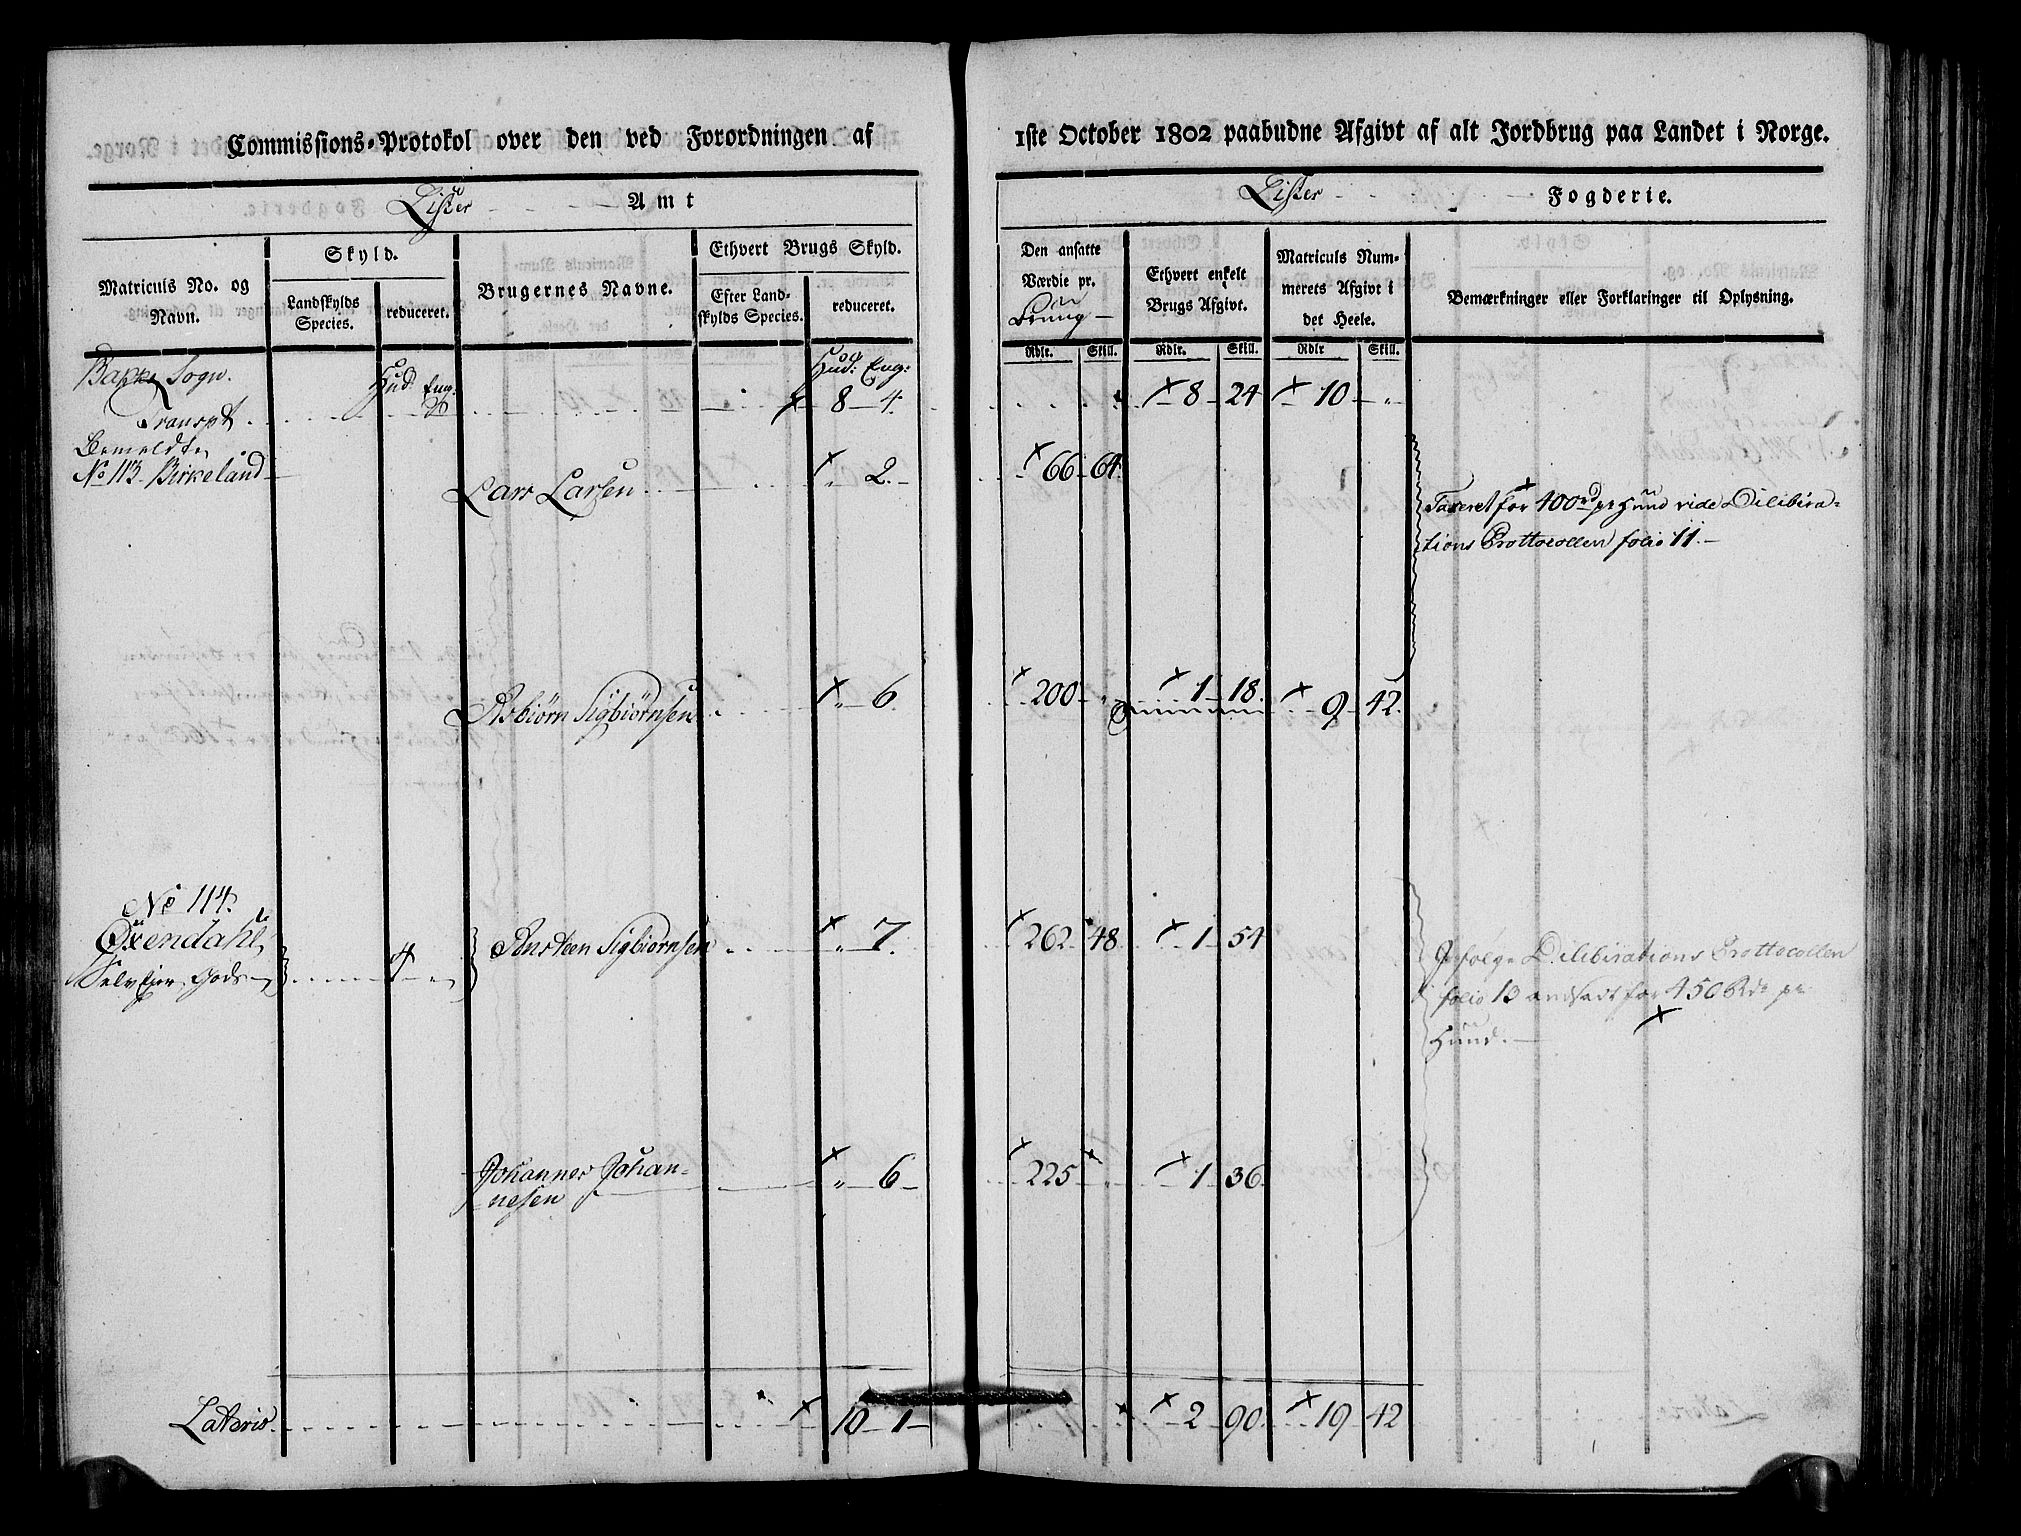 Commissions-Protokol over den ved Forordningen af
1ste October 1802 paabudne Afgivt af alt Jordbrug paa Landet i Norge.
Lister Amt
Lister Fogderie.
Matriculs No. og Navn.
Skyld.
Landskylds Species.
reduceret.
Brugernes Navne.
Ethvert Brugs Skyld.
Efter Landskylds Species.
reduceret.
Den ansatte Værdie pr.
Ethvert enkelt Brugs Afgivt.
Matriculs Nummerets Afgivt i det Heele.
Bemærkninger eller Forklaringer til Oplysning.
Rdlr. Skill. Rdlr. Skill. Rdlr Skill.
Bakke Sogn. Hud. Eng: Hud: Eng:
Transpt 8 4 8 24 10 "
Bemeldte
No 113 Birkeland
Lars Larsen 2 66 64
Taxeret for 400rd pr Huud vide Dilibira-
tions Prottocollen folio 11.
Asbiørn Sigbiørnsen " 6 200 " 1 18 9 42
No 114.
Øxendahl
Selv Eier Gods
Sigbiørnsen " 7 262 48 1 54
Ifølge Dilibirations Prottocollen
folio 13 andsadt for 450 Rdr pr
Huud.
Johannes Johan-
nesen " 6 225 " 1 36
Lateris 10 1 2 90 19 42